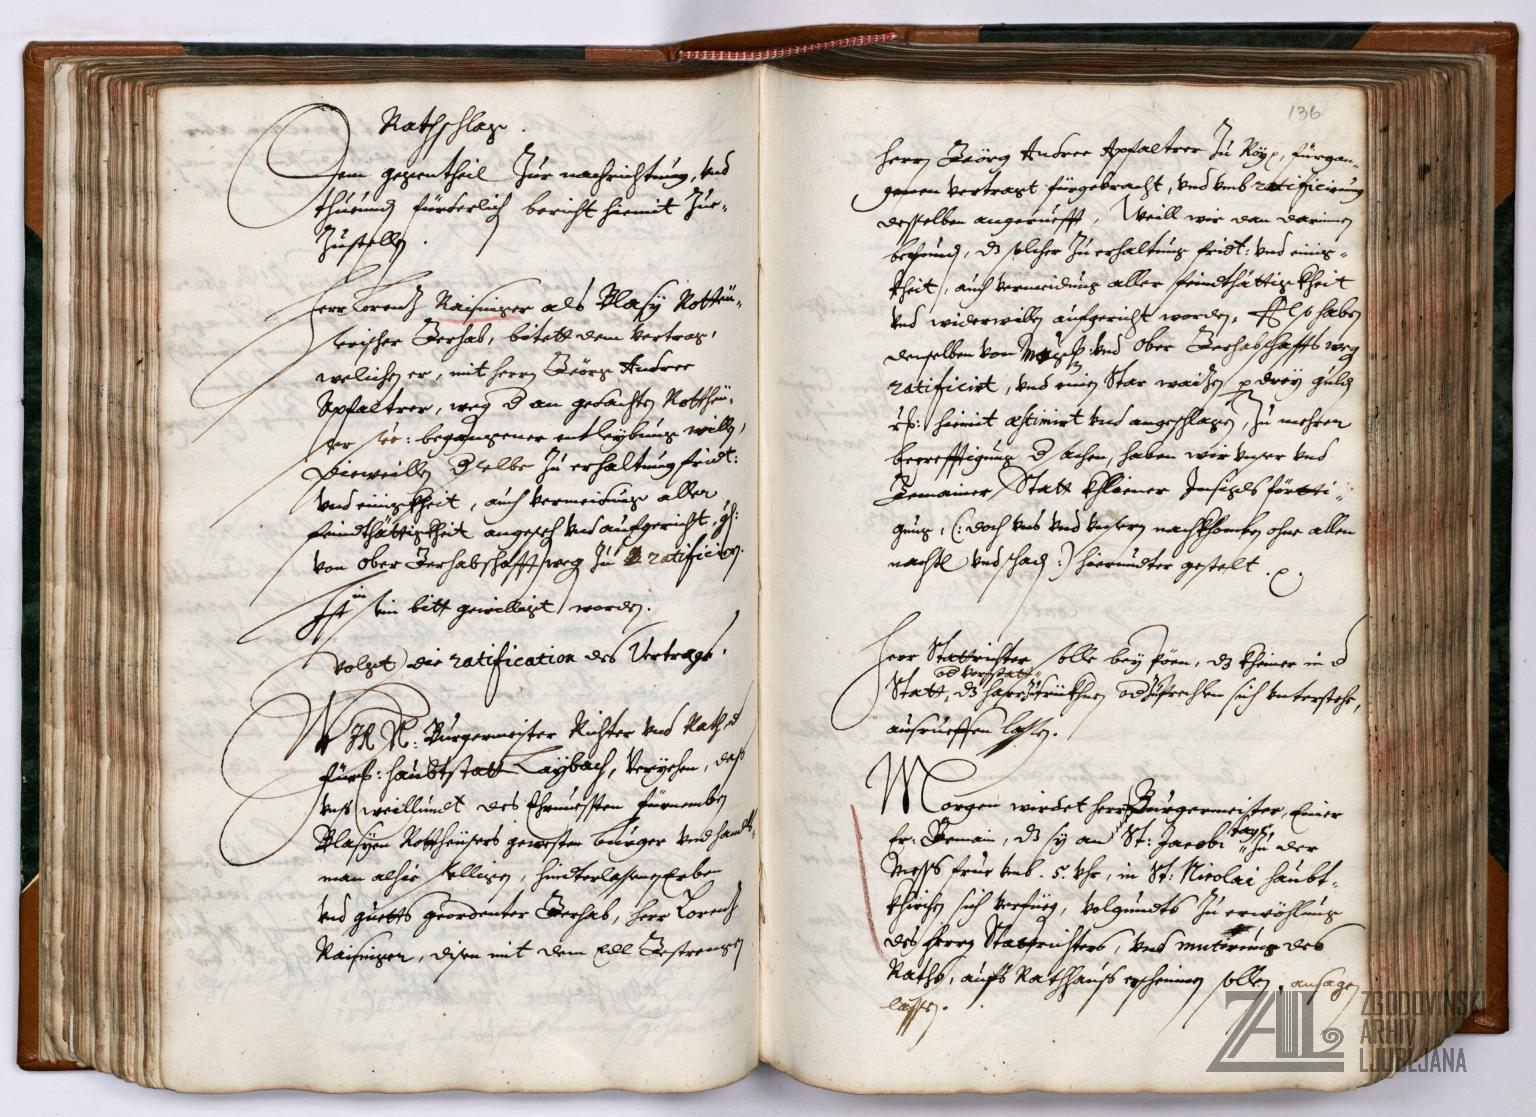 Rathschlag.
Dem gegentheil Zur nachrichtung, vnd
thuenden fürderlich bericht hiemit Zue-
Zustellen.
Herr Lorentz Raisinger als Blasy Rottheü-
serischer Gerhab, bitett dem vertrag,
welichen er, mit herrn Geörg Andree
Apfaltrer, weg d an gedachten Rottheü-
ser see: begangener entleybung willen,
dieweillen dselbe Zu erhaltung fridt:
vnd einigkheit, auch vermeidung aller
feindthättigkheit angesech vnd aufgericht,
von ober Gerhabschafft weg Zu ratificirn.
Ist in sein bitt gewilligt worden.
Volget die ratification des Vertrags.
WIR N: Burgermeister Richter vnd Rath d
fürstl: haubtstatt Laybach, Veryehen, daß
vnß weillundt des Ehrnuessten fürnemben
Blasyen Rottheüsers gewesten burger vnd handls-
man alhie selligen, hinderlassnen Erben
vnd guetts geordenter Gerhab, herr Lorentz
Raisinger, disen mit dem Edl Gestrengen
136
herrn Geörg Andree Apfaltrer Zu Röyg, fürgan-
genen vertragt fürgebracht, vnd vmb ratificirung
desselben angeruefft, Weill wir dan darinnen
befunden, dz solcher Zu erhaltung fridt: vnd einig-
kheit, auch vermeidung aller feindthättigkheit
vnd widerwillen aufgericht worden, Also haben
denselben von vnd ober Gerhabschaffts weg
ratificirt, vnd einen Star waitzen p drey guld
hiemit æstimirt vnd angeschlagen, Zu mehren
becrefftigung d sachen, haben wir vnser vnd
Gemainer Statt khleiner Insigls förtti-
gung, (: doch vns vnd vnsern nachkhomben ohne allen
nachtl vnd schad :) hierundter gestelt.
Herr Stattrichter solle bey pöen, dz kheiner in d
od vorstatt
Statt, dz har Zutrükhnen od Zuprechlen sich vnterstehe,
ausrueffen lassen.
Morgen wirdet herr Burgermeister, Einer
Er: Gemain, dz sy an St: Jacobi tag, Zu der
Mess frue vmb .5. Vhr, in St: Nicolai haubt-
khirchen sich verfüeg, volgundts Zu erwöhlung
des herrn Stattrichters, vnd mutirung des
Raths, aufs Rathhauß erscheinnen sollen, ansagen
lassen.
ZAL
ZGODOVINSKI
ARHIV
LJUBLJANA